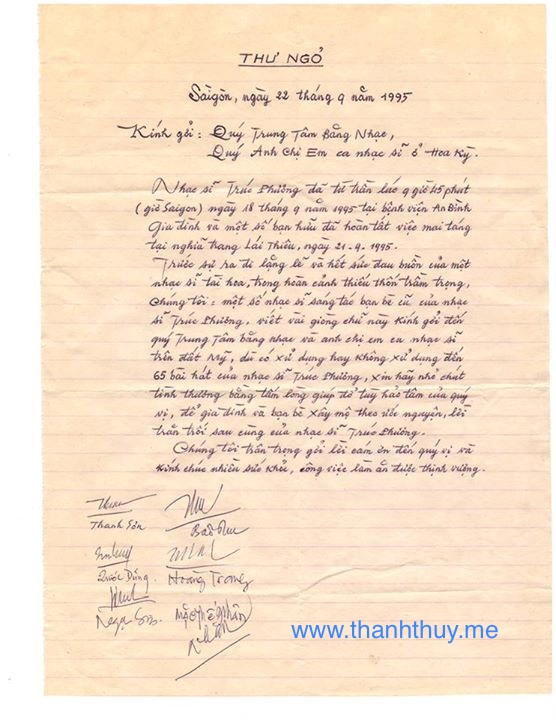 THƯ NGỎ
Sàigòn, ngày 22 tháng 9 năm 1995
Kính gởi : Quý Trung Tâm Băng Nhạc,
Quý Anh Chị Em ca nhạc sĩ ở Hoa Kỳ.
Nhạc sĩ Trúc Phương đã từ trần lúc 9 giờ 45 phút
( giờ Saigon ) ngày 18 tháng 9 năm 1995 tại bệnh viện An Bình
Gia đình và một số bạn hữu đã hoàn tất việc mai táng
tại nghĩa trang Lái Thiêu, ngày 21.9.1995.
Trước sự ra đi lặng lẽ và hết sức đau buồn của một
nhạc sĩ tài hoa, trong hoàn cảnh thiếu thốn trầm trọng,
Chúng tôi : một số nhạc sĩ sáng tác bạn bè cũ của nhạc
sĩ Trúc Phương, viết vài giòng chữ này kính gởi đến
quý Trung Tâm băng nhạc và anh chị em ca nhạc sĩ
trên đất Mỹ, dù có xử dụng hay không xử dụng đến
65 bài hát của nhạc sĩ Trúc Phương, xin hãy nhỏ chút
tình thương bằng tấm lòng giúp đỡ tuỳ hảo tâm của quý
vị, để gia đình và bạn bè xây mộ theo ước nguyện, lời
trăn trối sau cùng của nhạc sĩ Trúc Phương.
Chúng tôi trân trọng gởi lời cám ơn đến quý vị và
kính chúc nhiều sức khỏe, công việc làm ăn được thịnh vượng.
Thanh Sơn
Bảo Thu
Quốc Dũng
Hoàng Trang
Mặc Thế Nhân
www.thanhthuy.me